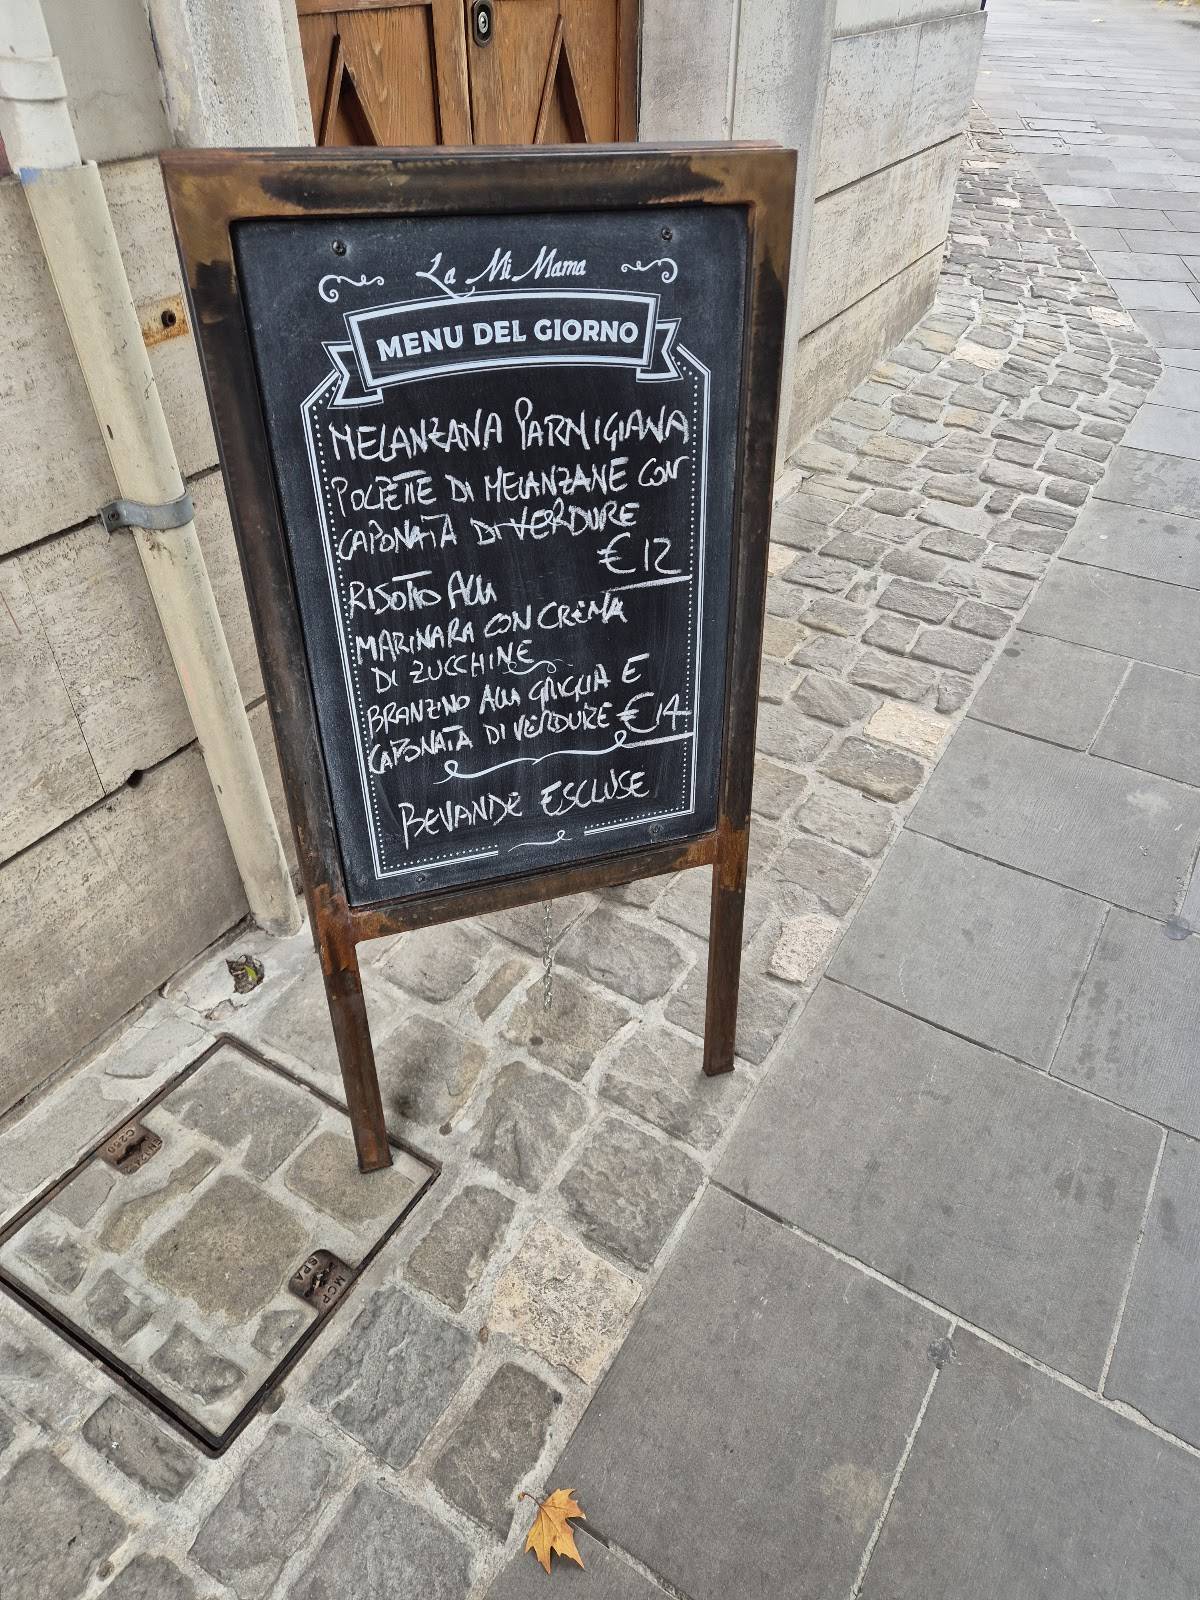 La Mi Mama
MENU DEL GIORNO
MELANZANA PARMIGIANA
POLPETTE DI MELANZANE CON
CAPONATA DI VERDURE
€ 12
RISOTTO ALLA
MARINARA CON CREMA
DI ZUCCHINE
BRANZINO ALLA GRIGLIA E
CAPONATA DI VERDURE € 14
BEVANDE ESCLUSE
EN124-2
C250
MCP
SPA